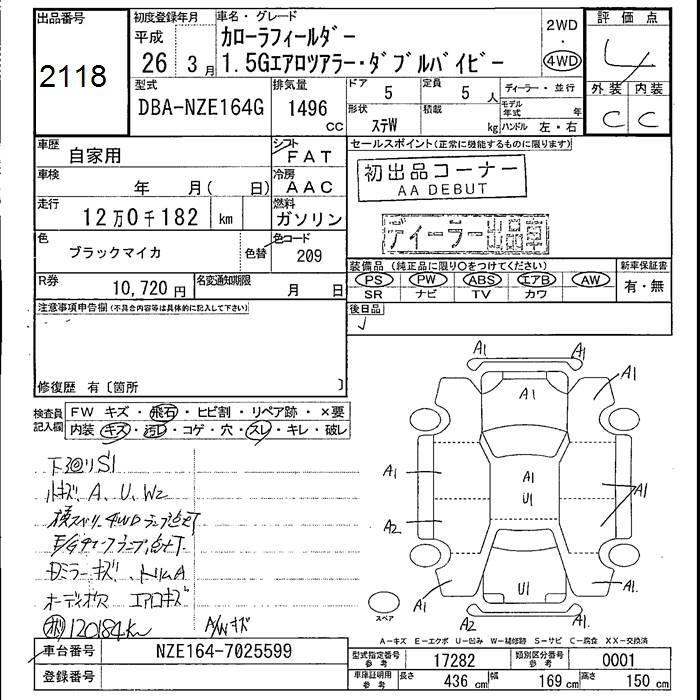 出品番号
2118
初度登録年月
平成
26 3月
車名・グレード
カローラフィールダー
1.5Gエアロツアラー・ダブルバイビー
2WD
・
4WD
評価点
4
外装 内装
C C
型式
DBA-NZE164G
排気量
1496
cc
ドア
5
定員
5 人
形状
ステW
積載
kg
ディーラー・並行
モデル年式 年
ハンドル 左・右
車歴
自家用
シフト
FAT
車検
年 月( 日)
冷房
AAC
走行
12万0千182 km
燃料
ガソリン
色
ブラックマイカ
色替
色コード
209
R券
10,720 円
名変通知期限
月 日
セールスポイント(正常に機能するものに限ります)
初出品コーナー
AA DEBUT
ディーラー出品車
装備品 (純正品に限り○をつけてください)
PS PW ABS エアB AW
SR ナビ TV カワ
新車保証書
有・無
後日品
注意事項申告欄(不具合内容等は具体的に記入して下さい)
修復歴 有〔箇所 〕
検査員
記入欄
FW キズ・飛石・ヒビ割・リペア跡・×要
内装 キズ・汚レ・コゲ・穴・スレ・キレ・破レ
下回りS1
小キズ A、U、W2
横スベリ、4WDランプ点灯
E/Gチェックランプ点灯
Dミラーキズ トリムA
オーディオス エアロキズ
120184km A/Wキズ
A1 A1
A1
A1
A1
A1
U1
A1
A2
U1
A1
A1
A2
A1
スペア
A-キズ E-エクボ U-凹み W-補修跡 S-サビ C-腐食 XX-交換済
車台番号
NZE164-7025599
登録番号
型式指定番号
参考
17282
類別区分番号
参考
0001
車庫証明用
参考
長さ 436 cm 幅 169 cm 高さ 150 cm